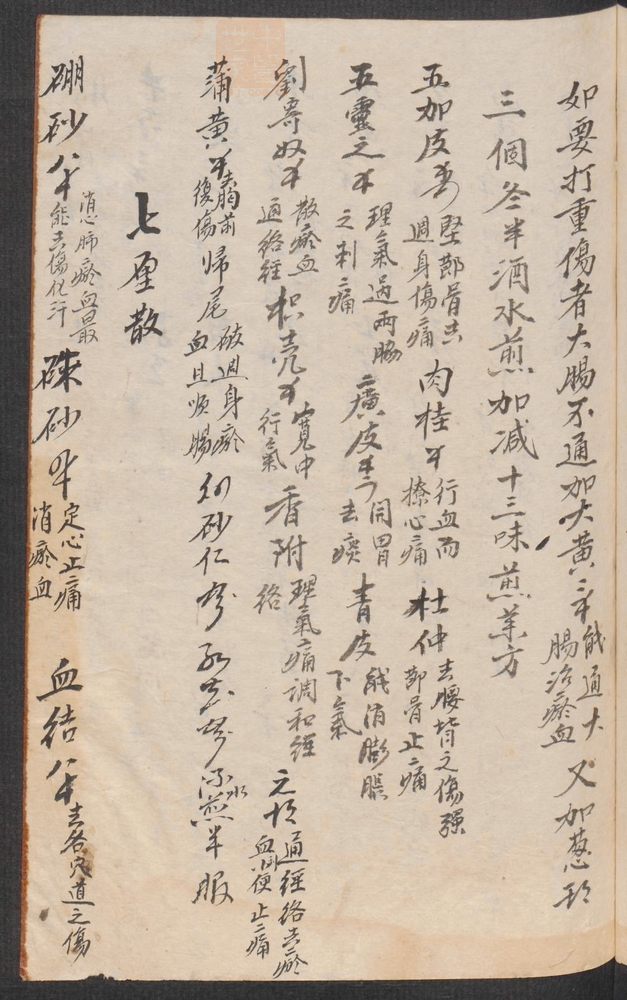 如要打重傷者大腸不通加大黃三个能通大腸治瘀血又加葱頭
三個冬半酒水煎加減十三味煎羊方
五加皮 堅節骨去週身傷痛 肉桂 行血而撩心痛 杜仲 去腰背之傷強節骨止痛
五靈之 理氣過兩脇之刺痛 廣皮 開胃去痰 青皮 能消膨脹下氣
劉寄奴 散瘀血通絡經 枳壳 寬中行氣 香附 理氣痛調和經絡 元胡 通經絡去瘀血 便止痛
蒲黃 去胸前復傷 歸尾 破週身瘀血且順腸 砂仁 水煎半服
七厘散
硼砂 消心肺瘀血最能去傷化行 硃砂 定心止痛消瘀血 血結 去各穴道之傷